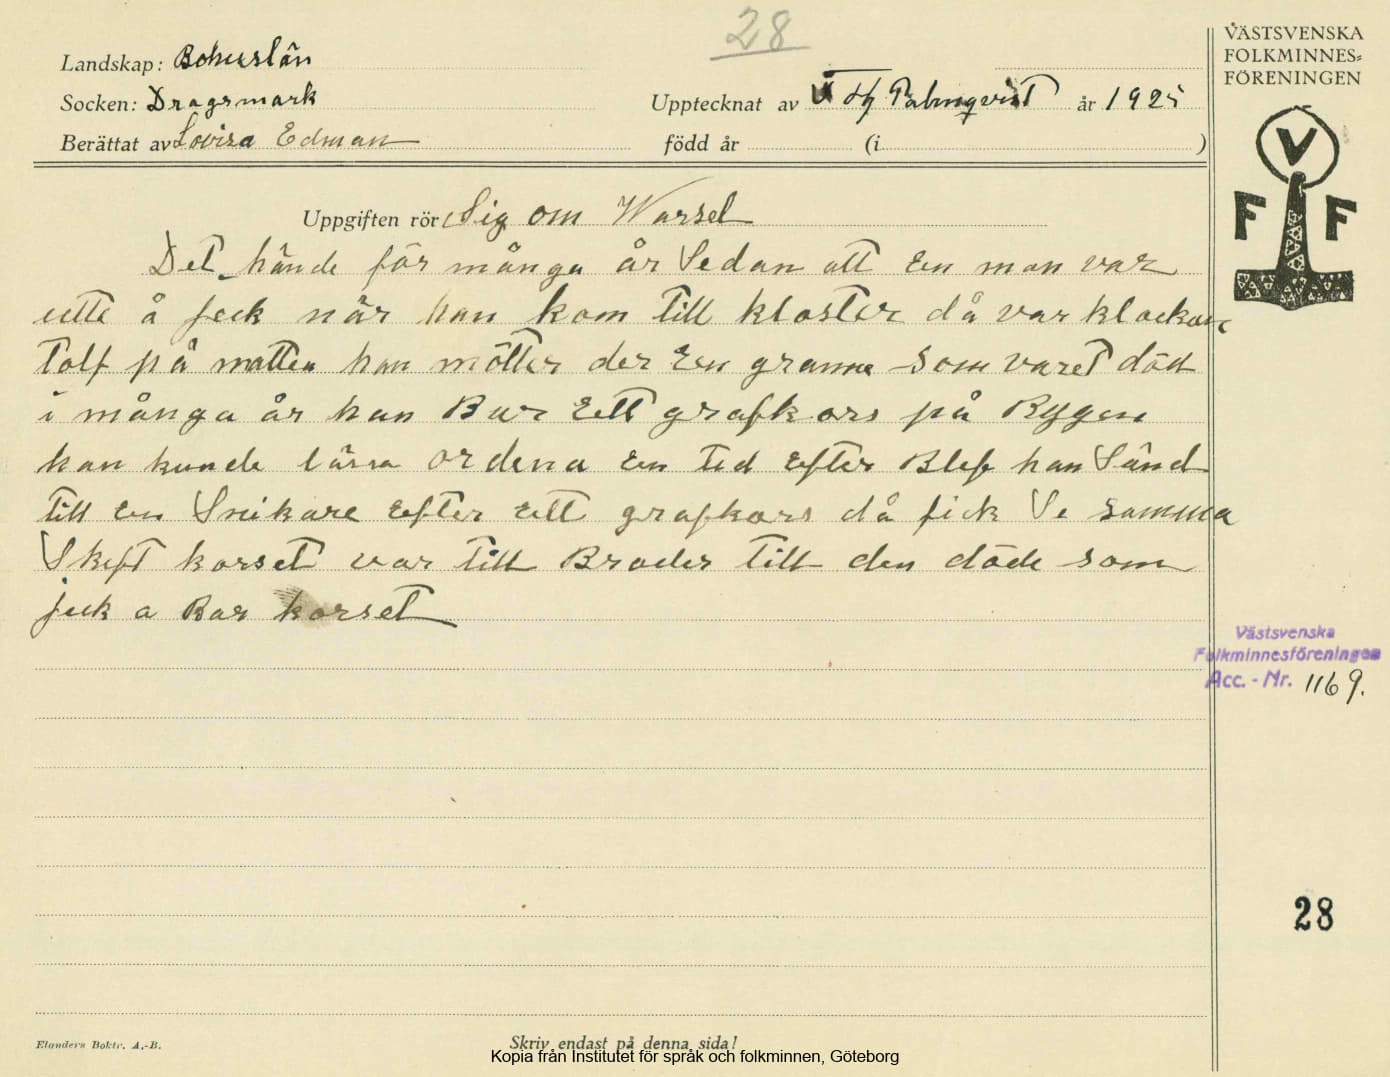 28
VÄSTSVENSKA
FOLKMINNES=
FÖRENINGEN
Landskap: Bohuslän
Socken: Dragsmark
Upptecknat av Palmqvist år 1925
Berättat av Lovisa Edman
född år (i )
V
F F
Uppgiften rör Sig om Warsel
Det hände för många år Sedan att En man var
utte å feck när han kom till kloster då var klockan
tolf på natten han mötter der En granne som varet död
i många år han Bar Ett grafkors på Rygen
han kunde lässa ordena En tid Efter Blef han Sänd
till En Snikare Efter Ett grafkors då fick Se samma
Skrift korset var till Broder till den döde som
feck a Bar korset
Västsvenska
Folkminnesföreningen
Acc. - Nr. 1169.
28
Elanders Boktr. A.-B.
Skriv endast på denna sida!
Kopia från Institutet för språk och folkminnen, Göteborg